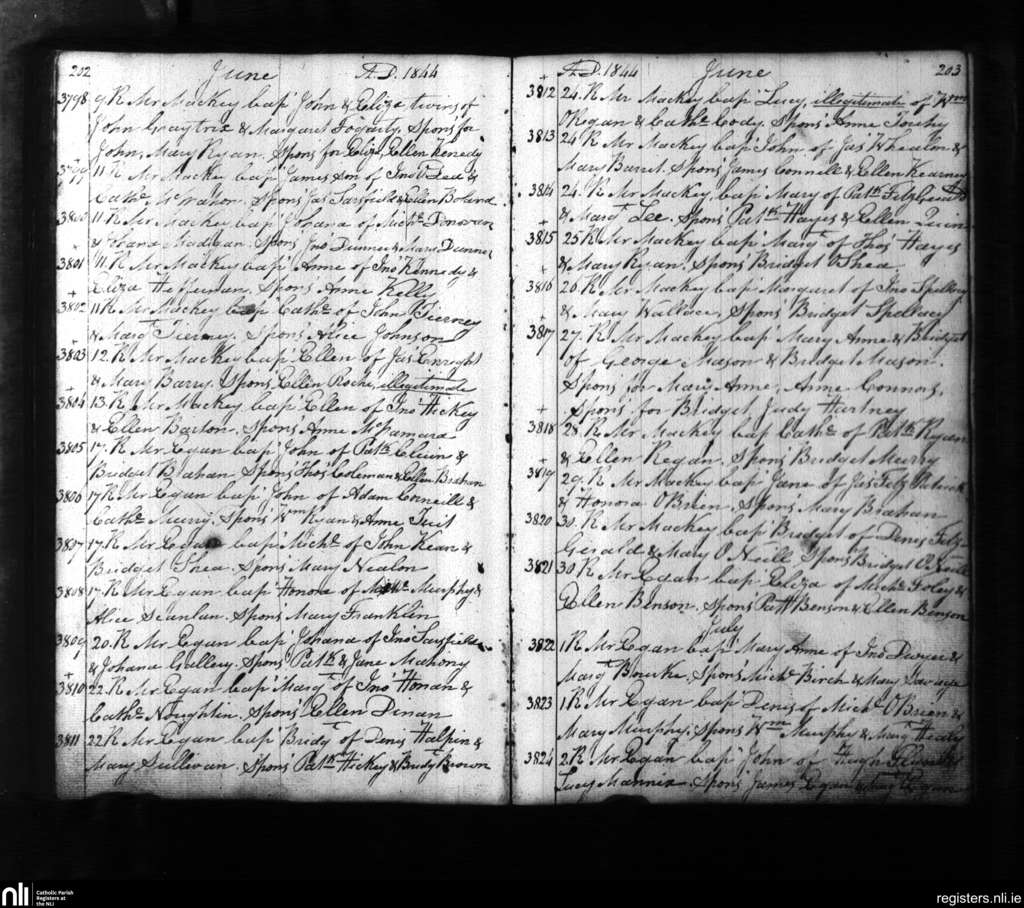 202 June A.D. 1844
3798 9 R Mr Mackey bapd John & Eliza twins of
John Graytrix & Margaret Fogarty. Spons for
John, Mary Ryan. Spons for Eliza, Ellen Kenedy
3799 11 R Mr Mackey bapd James son of Jno &
Cathe McMahon. Spons Jas Sarsfield & Ellen Boland
3800 11. R Mr Mackey bapd Johana of Michl Donovan
& Madigan. Spons Jno Dunne & Mary Dunne
3801 11 R Mr Mackey bapd Anne of Jno Kennedy &
Eliza Heffernan. Spons Anne Kelly
3802 11 R Mr Mackey bapd Cathe of John Tierney
& Margt Tierney. Spons Alice Johnson
3803 12. R Mr Mackey bapd Ellen of Jas Enright
& Mary Barry. Spons Ellen Roche, illegitimate
3804 13. R Mr Mackey bapd Ellen of Jno Hickey
& Ellen Barton. Spons Anne McNamara
3805 17. R Mr Egan bapd John of Patk &
Bridget Brahan Spons Thos Coleman & Ellen Brahan
3806 17 R Mr Egan bapd John of Adam Conneill &
Cathe Murry. Spons Wm Ryan & Anne Tuit
3807 17. R Mr Egan bapd Michl of John Kean &
Bridget Shea. Spons Mary Nealon
3808 17. R Mr Egan bapd Honora of Michl Murphy &
Alice Scanlan. Spons Mary Franklin
3809 20. R Mr Egan bapd Johana of Jno Sarsfield
& Johana Gallery. Spons Patk & Jane Mahony
3810 22. R Mr Egan bapd Margt of Jno Honan &
Cathe Noughtin. Spons Ellen Dinan
3811 22 R Mr Egan bapd Bridgt of Denis Halpin &
Mary Sullivan. Spons Patk Hickey & Bridgt Brown
A.D. 1844 June 203
3812 24. R Mr Mackey bapd Lucy, illegitimate of Wm
Regan & Cathe Cody. Spons Anne Touhy
3813 24 R Mr Mackey bapd John of Jas Whealon &
Mary Barret. Spons James Connell & Ellen Kearney
3814 24. R Mr Mackey bapd Mary of Patk Fitzgerald
& Margt Lee. Spons Patk Hayes & Ellen Quin
3815 25 R Mr Mackey bapd Margt of Thos Hayes
& Mary Ryan. Spons Bridget O'Shea
3816 26. R Mr Mackey bapd Margaret of Jno Spellacy
& Mary Wallace. Spons Bridget Spellacy
3817 27. R Mr Mackey bapd Mary Anne & Bridget
of George Mason & Bridget Mason.
Spons for Mary Anne, Anne Connors,
Spons for Bridget, Judy Hartney
3818 28 R Mr Mackey bapd Cathe of Patk Ryan
& Ellen Regan. Spons Bridget Murry
3819 29. R Mr Mackey bapd Jane of Jas Fitz Patrick
& Honora O'Brien. Spons Mary Brahan
3820 30. R Mr Mackey bapd Bridget of Denis Fitz-
Gerald & Mary O'Neill Spons Bridget O'Neill
3821 30 R Mr Egan bapd Eliza of Michl Foley &
Ellen Benson. Spons Patk Benson & Ellen Benson
July
3822 1 R Mr Egan bapd Mary Anne of Jno Dwyer &
Margt Bourke. Spons Michl Birch & Mary Savage
3823 1 R Mr Egan bapd Denis of Michl O'Brien &
Mary Murphy. Spons Wm Murphy & Margt Healy
3824 2. R Mr Egan bapd John of Hugh
Lucy Mannix. Spons James Egan &
nli
Catholic Parish
Registers at
the NLI
registers.nli.ie